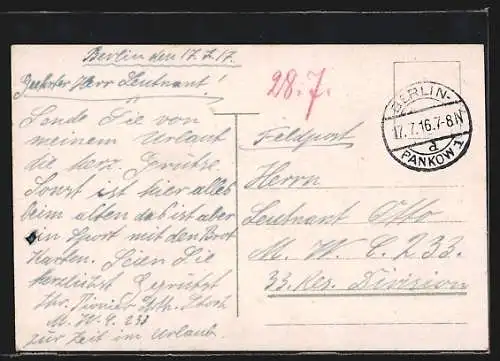 Berlin den 17.7.17.
Geehrter Herr Leutnant!
Sende Sie von
meinem Urlaub
die herz. Grütze
Sonst ist hier alles
beim alten das ist aber
ein Sport mit den Brot
Karten. Seien Sie
herzlichst Grützt
Ihr. Pionier
M. W. C. 233
zur Zeit im Urlaub.
28.7.
BERLIN-
17.7.16.7-8N
d
PANKOW 1
Feldpost
Herrn
Leutnant Otto
M. W. C. 233.
33. Res. Division